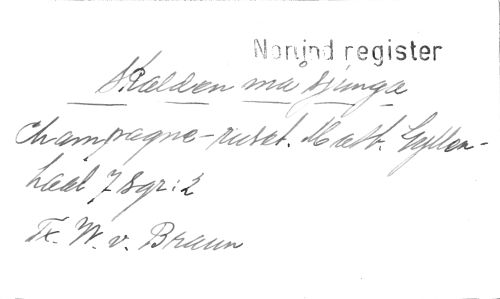 Nomind register
Skalden må sjunga
Champagne-ruset. Math. Gyllen-
haal 7 sgr: 2
Tx. W. v. Braun